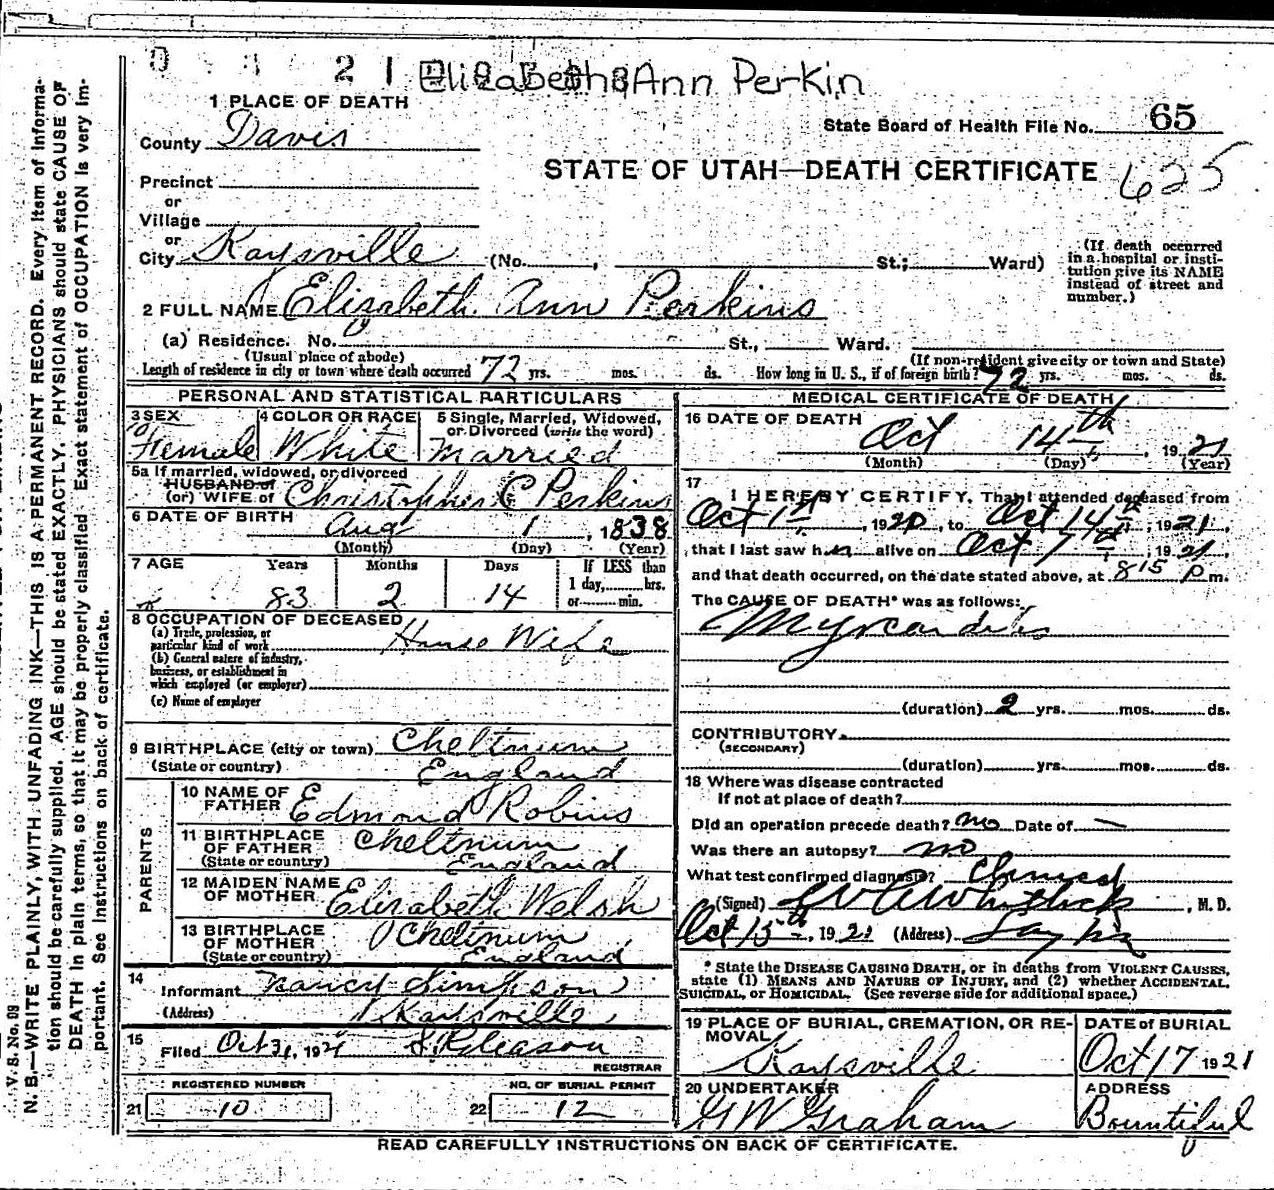 2 1
Elizabeth Ann Perkin
1 PLACE OF DEATH
County Davis
State Board of Health File No. 65
STATE OF UTAH—DEATH CERTIFICATE 625
Precinct
or
Village
or
City Kaysville (No. , St.; Ward)
(If death occurred in a hospital or institution give its NAME instead of street and number.)
2 FULL NAME Elizabeth Ann Perkins
(a) Residence. No. St., Ward.
(Usual place of abode) (If non-resident give city or town and State)
Length of residence in city or town where death occurred 72 yrs. mos. ds. How long in U. S., if of foreign birth? 72 yrs. mos. ds.
PERSONAL AND STATISTICAL PARTICULARS
3 SEX Female
4 COLOR OR RACE White
5 Single, Married, Widowed, or Divorced (write the word) Married
5a If married, widowed, or divorced
HUSBAND of
(or) WIFE of Christopher C Perkins
6 DATE OF BIRTH Aug 1, 1838
(Month) (Day) (Year)
7 AGE Years Months Days If LESS than
83 2 14 1 day, hrs.
or min.
8 OCCUPATION OF DECEASED
(a) Trade, profession, or particular kind of work House Wife
(b) General nature of industry, business, or establishment in which employed (or employer)
(c) Name of employer
9 BIRTHPLACE (city or town) Cheltnum
(State or country) England
PARENTS
10 NAME OF FATHER Edmond Robins
11 BIRTHPLACE OF FATHER Cheltnum
(State or country) England
12 MAIDEN NAME OF MOTHER Elizabeth Welsh
13 BIRTHPLACE OF MOTHER Cheltnum
(State or country) England
14
Informant Nancy Simpson
(Address) Kaysville
15
Filed Oct 31, 1921 S. Gleason
REGISTRAR
REGISTERED NUMBER NO. OF BURIAL PERMIT
21 10 22 12
MEDICAL CERTIFICATE OF DEATH
16 DATE OF DEATH
Oct 14th, 1921
(Month) (Day) (Year)
17
I HEREBY CERTIFY, That I attended deceased from
Oct 1st, 1920, to Oct 14th, 1921,
that I last saw her alive on Oct 7th, 1921
and that death occurred, on the date stated above, at 815 p m.
The CAUSE OF DEATH* was as follows:
Myocarditis
(duration) 2 yrs. mos. ds.
CONTRIBUTORY
(SECONDARY)
(duration) yrs. mos. ds.
18 Where was disease contracted
If not at place of death?
Did an operation precede death? no Date of —
Was there an autopsy? no
What test confirmed diagnosis?
(Signed) Whitlock, M. D.
Oct 15th, 1921 (Address) Layton
* State the DISEASE CAUSING DEATH, or in deaths from VIOLENT CAUSES,
state (1) MEANS AND NATURE OF INJURY, and (2) whether ACCIDENTAL,
SUICIDAL, or HOMICIDAL. (See reverse side for additional space.)
19 PLACE OF BURIAL, CREMATION, OR REMOVAL Kaysville
DATE of BURIAL Oct 17 1921
20 UNDERTAKER G W Graham
ADDRESS Bountiful
READ CAREFULLY INSTRUCTIONS ON BACK OF CERTIFICATE.
V. S. No. 09
N. B.—WRITE PLAINLY, WITH UNFADING INK—THIS IS A PERMANENT RECORD. Every item of information should be carefully supplied. AGE should be stated EXACTLY. PHYSICIANS should state CAUSE OF DEATH in plain terms, so that it may be properly classified. Exact statement of OCCUPATION is very important. See instructions on back of certificate.